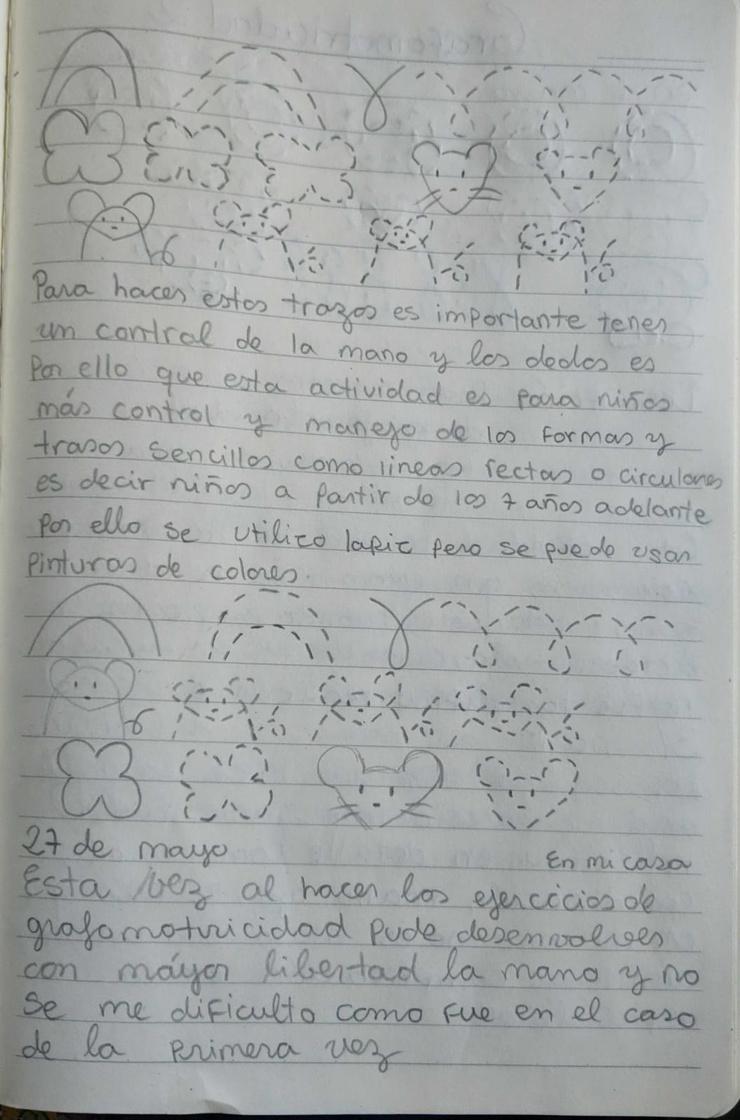 Para hacer estos trazos es importante tener
un control de la mano y los dedos es
Por ello que esta actividad es para niños
más control y manejo de los formas y
trasos sencillos como lineas rectas o circulares
es decir niños a partir de los 7 años adelante
Por ello se utilico lapic pero se puede usar
Pinturas de colores.
27 de mayo En mi casa
Esta vez al hacer los ejercicios de
grafomotricidad pude desenvolver
con máyor libertad la mano y no
se me dificulto como fue en el caso
de la primera vez